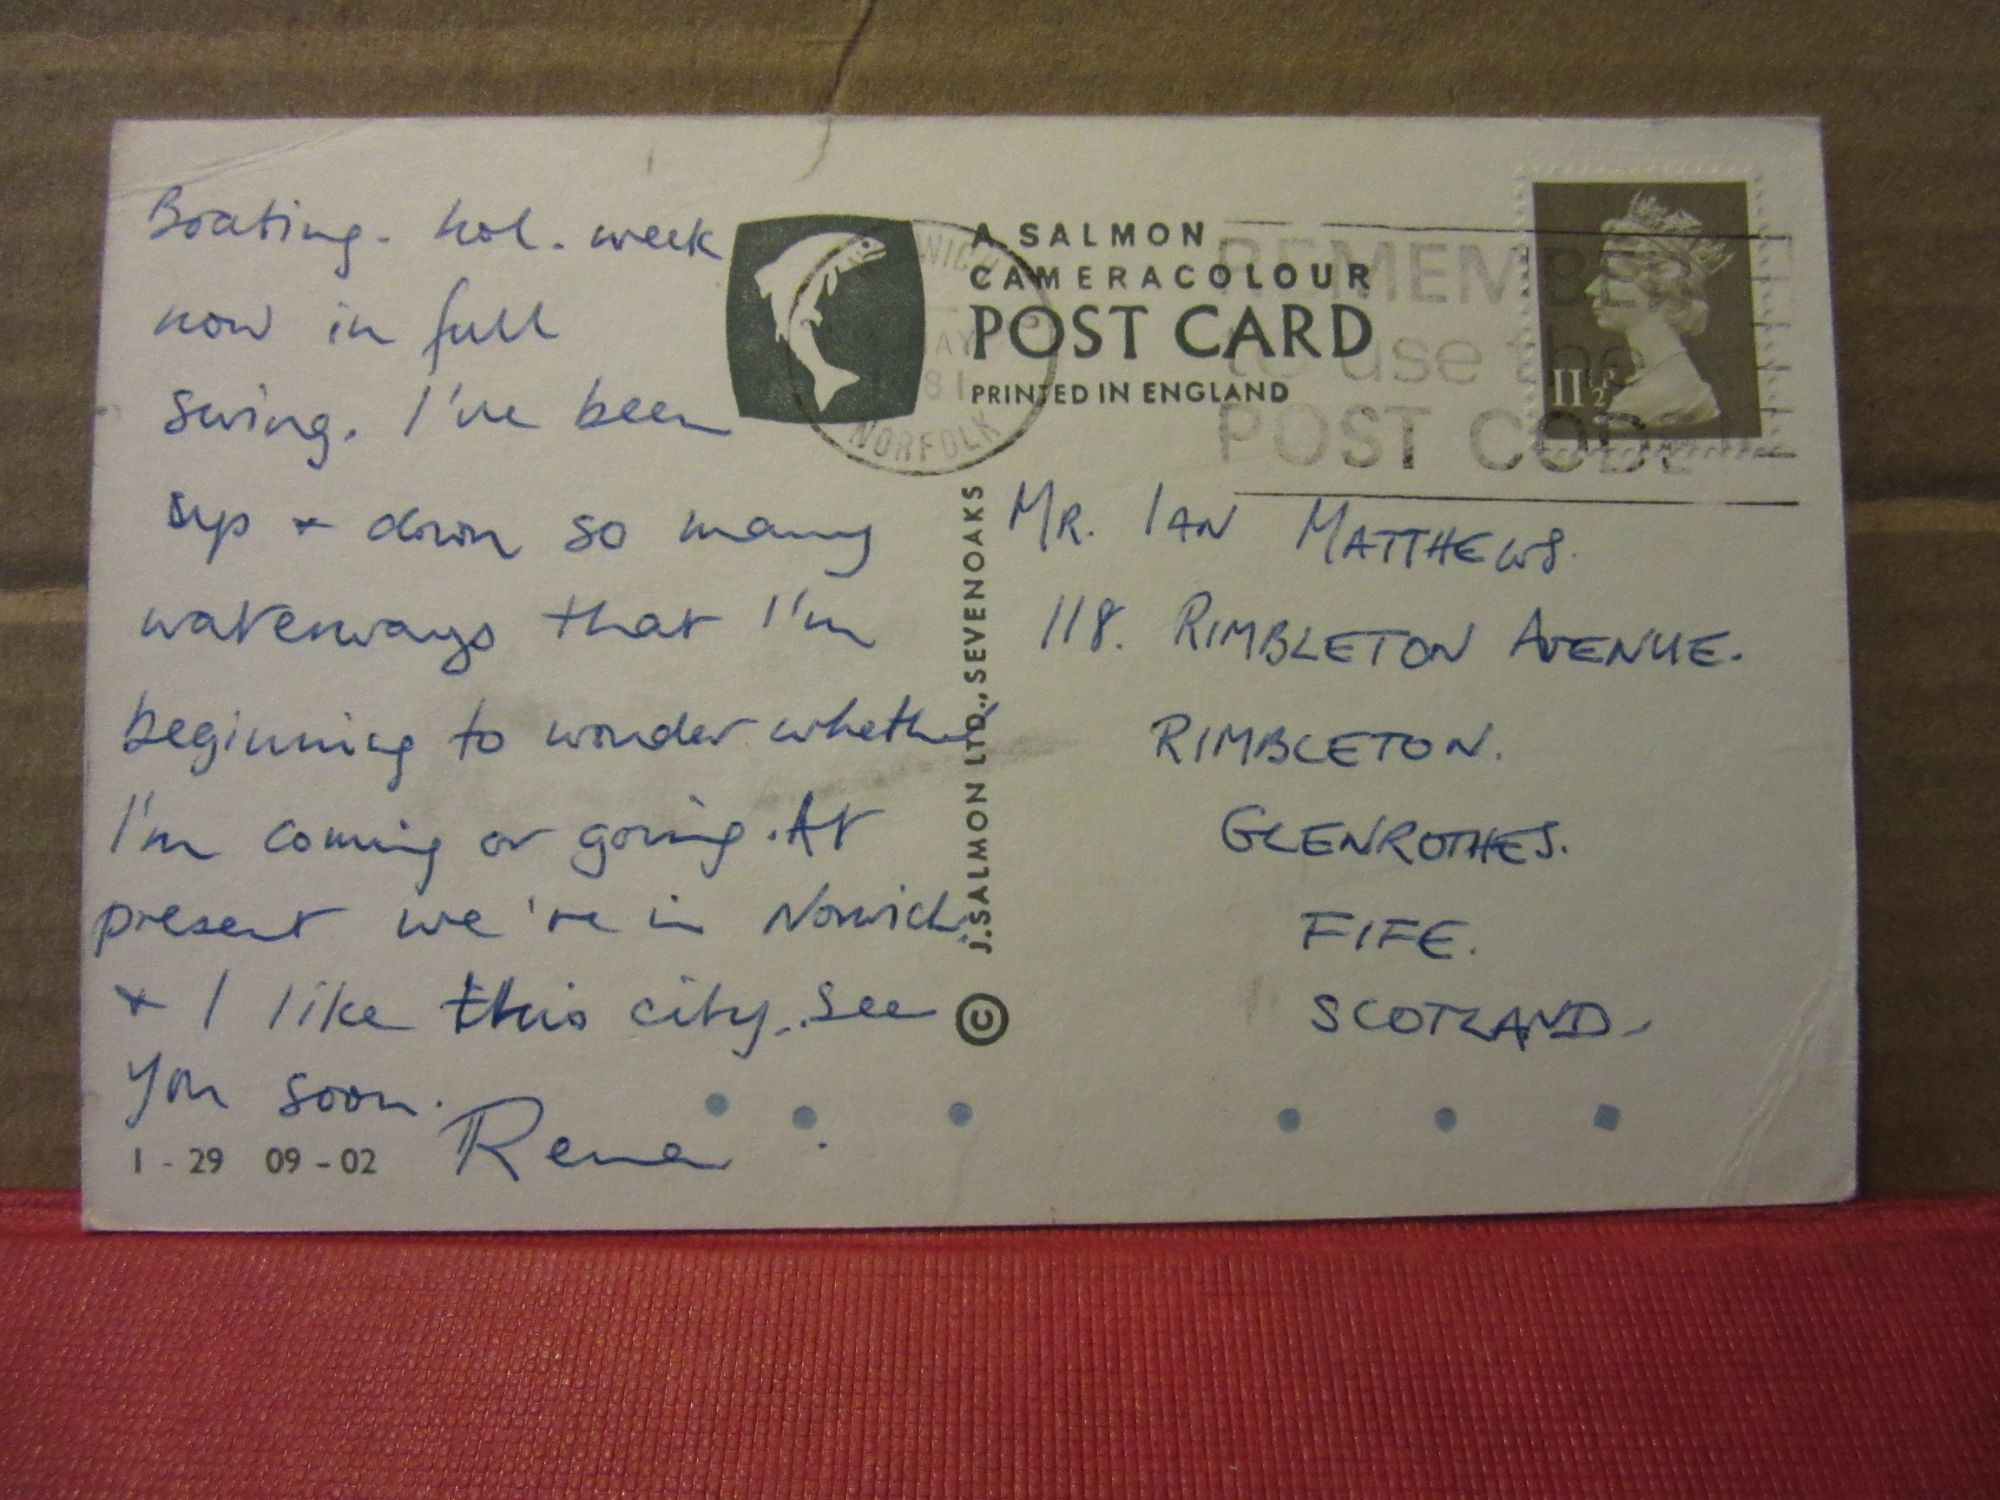 Boating. hol. week
now in full
swing. I've been
up + down so many
waterways that I'm
beginning to wonder whether
I'm coming or going. At
present we're in Norwich
+ I like this city. See
you soon.
Rena
1 - 29 09 - 02
A SALMON
CAMERACOLOUR
POST CARD
PRINTED IN ENGLAND
NORFOLK
REMEMBER
to use the
POST CODE
11½P
© J. SALMON LTD., SEVENOAKS
MR. IAN MATTHEWS.
118. RIMBLETON AVENUE.
RIMBLETON.
GLENROTHES.
FIFE.
SCOTLAND.